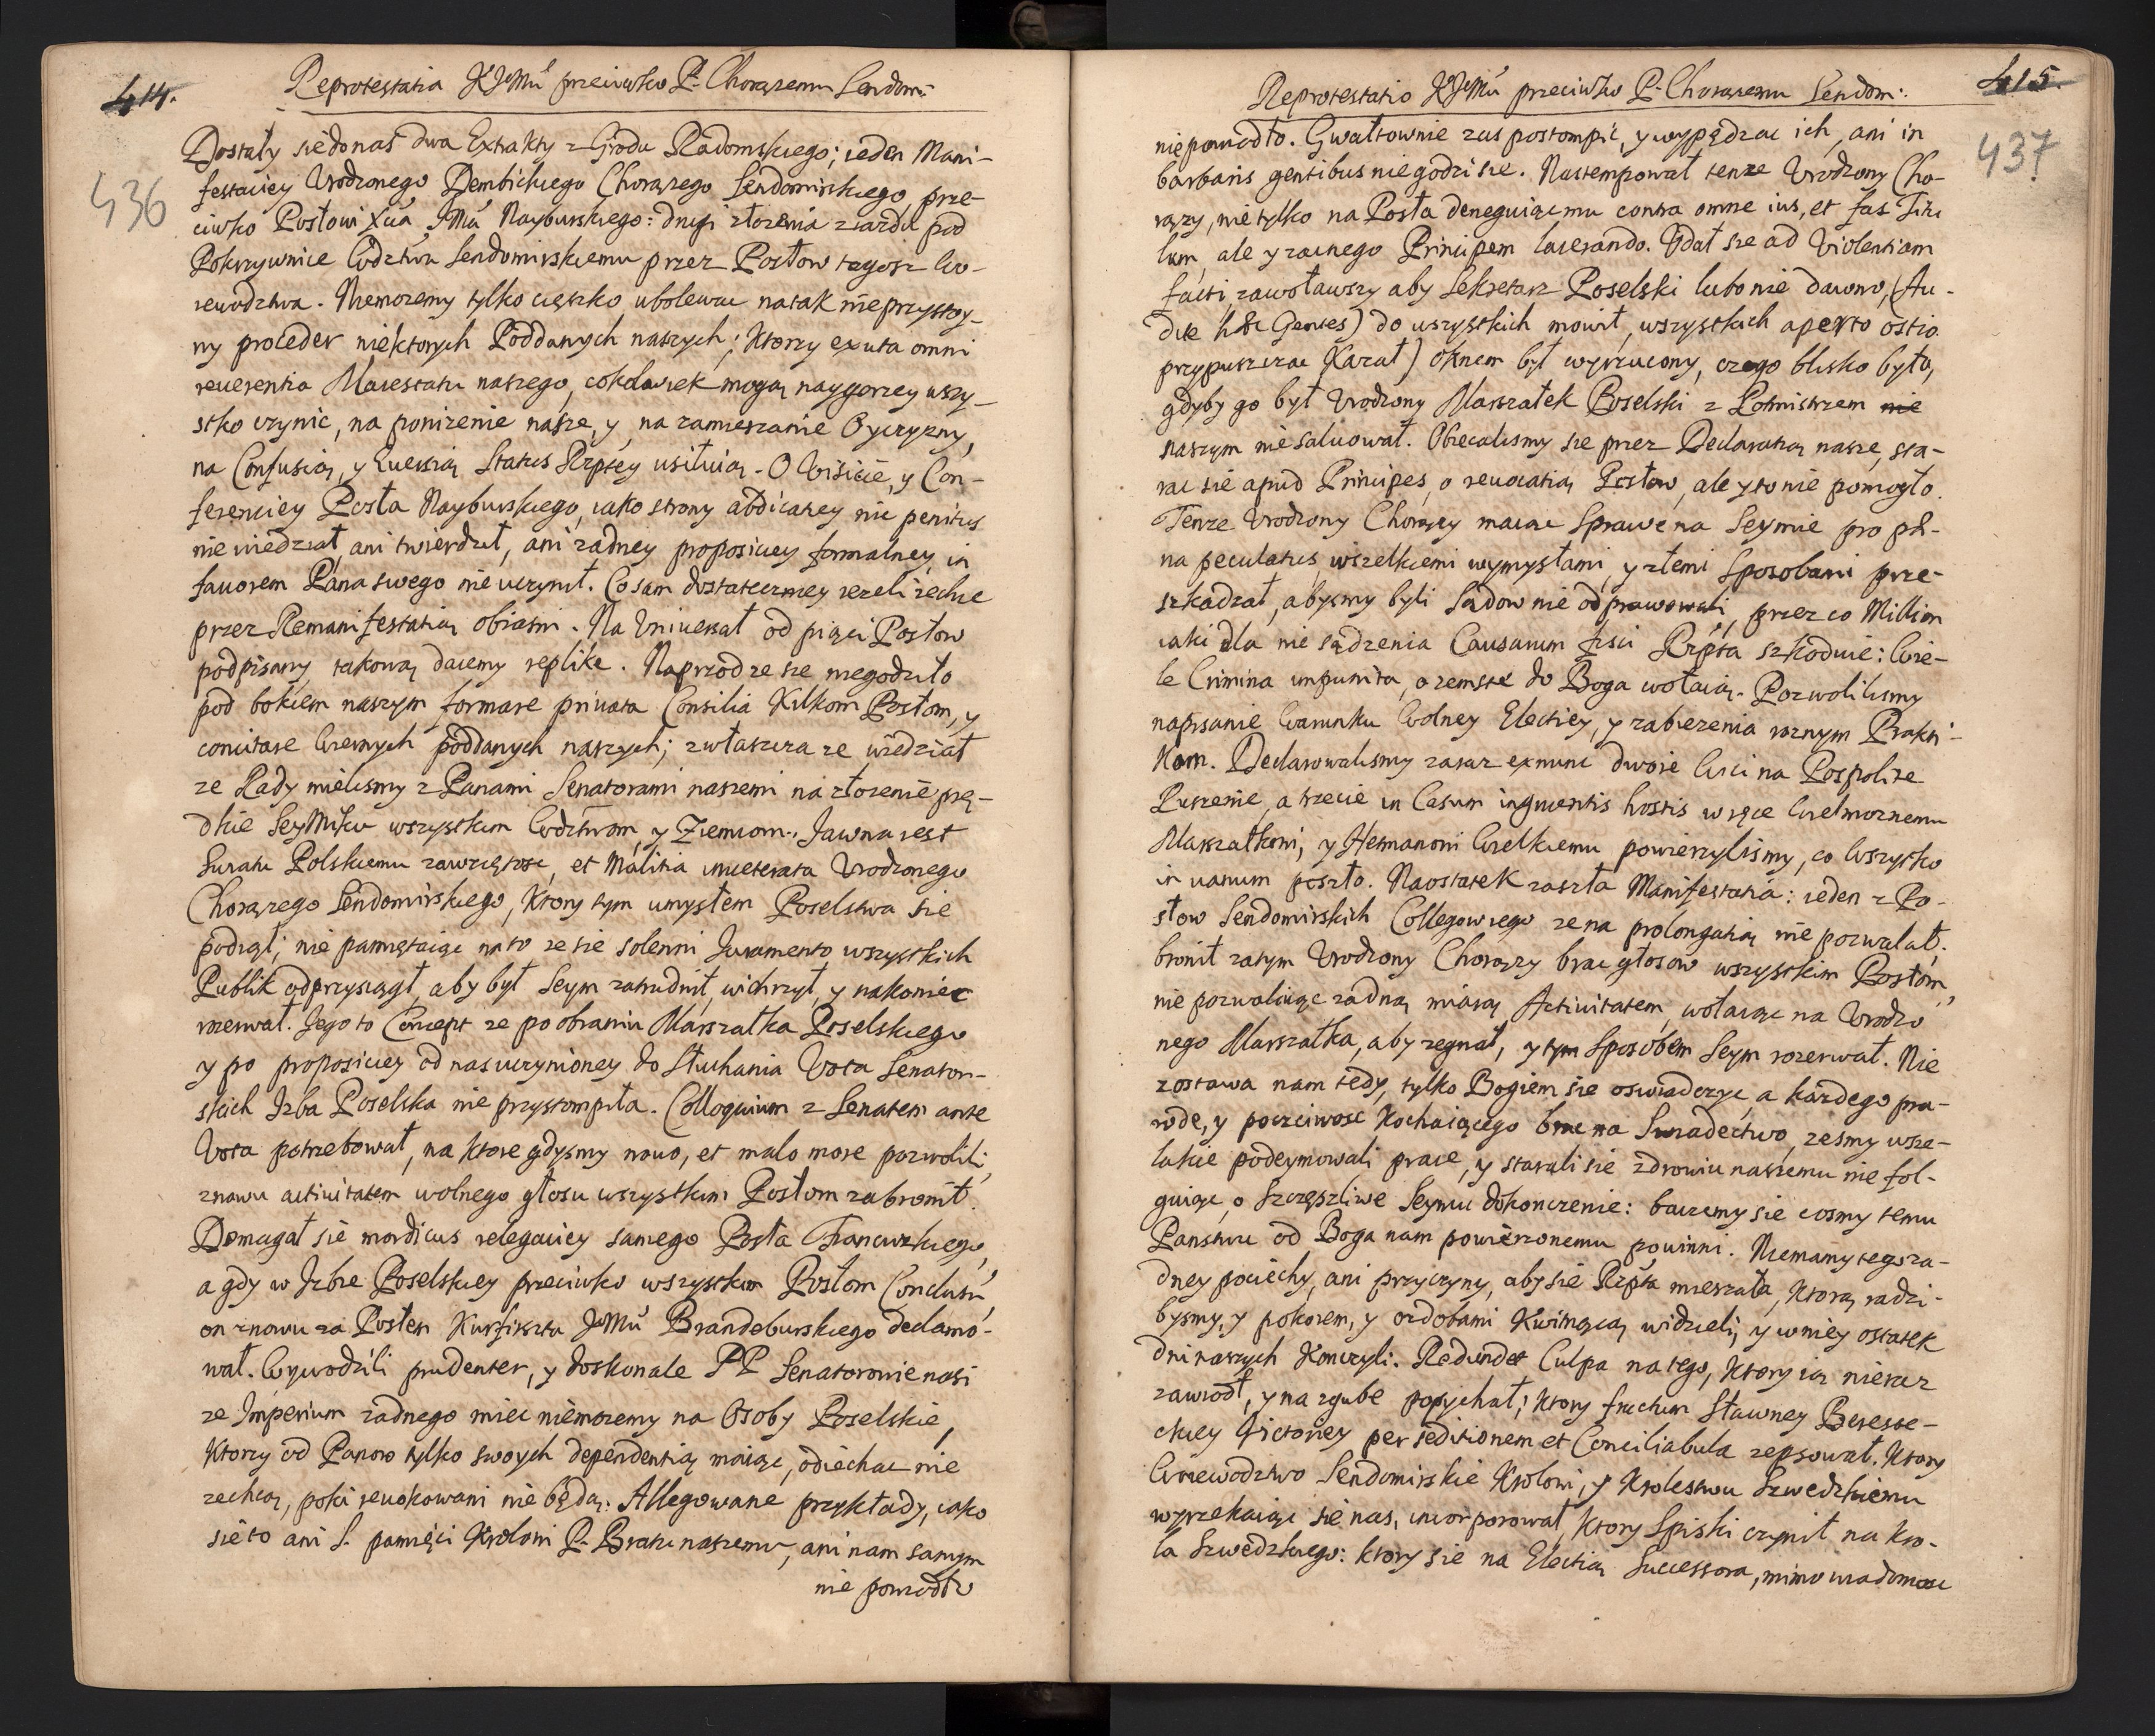 414.
436
Reprotestatia KJeMći przeciwko P. Chorązemu Sendom:
Dostały sie do nas dwa Extrakty z Grodu Radomskiego; ieden Mani-
festaciey Urodzonego Dembickiego Chorązego Sendomirskiego prze-
ciwko Posłowi Xcia JeMći Nayburskiego: drugi złozenia ziazdu pod
Pokrzywnice Wdztwu Sendomirskiemu przez Posłow tegosz Wo-
iewodztwa. Niemozemy tylko cięszko ubolewac na tak nieprzystoy-
ny proceder niektorych Poddanych naszych; ktorzy exuta omni
reuerentia Maiestatu naszego, cokolwiek mogą naygorzey wszy-
stko czynic, na ponizenie nasze, y na zamieszanie Oyczyzny,
na Confusią, y Euersią Status Rzptey usiłuią. O Wisicie, y Con-
ferenciey Posła Nayburskiego, iako strony abdicatey nic penitus
nie wiedział, ani twierdził, ani zadney proposiciey formalney in
fauorem Pana swego nie uczynił. Co sam dostateczniey iezeli zechce
przez Remanifestatią obiasni. Na Uniuersał od pięci Posłow
podpisany takową daiemy replike. Naprzod ze sie niegodziło
pod bokiem naszym formare priuata Consilia Kilkom Posłom, y
concitare wiernych poddanych naszych; zwłaszcza ze wiedział
ze Rady mielismy z Panami Senatorami naszemi na złozenie prę-
dkie Seymiku wszystkim Wdztwom, y Ziemiom. Jawna iest
Swiatu Polskiemu zawziętosc, et Malitia inueterata Urodzonego
Chorązego Sendomirskiego, ktory tym umysłem Poselstwa sie
podiął; nie pamiętaiąc na to ze sie solenni Juramento wszystkich
Publik odprzysiągł, aby był Seym zatrudnił, wichrzył, y nakoniec
rozerwał. Jego to Concept ze po obraniu Marszałka Poselskiego
y po proposiciey od nas uczynioney do słuchania Vota Senator-
skich Izba Poselska nie przystompiła. Colloquium z Senatem ante
Vota potrzebował, na ktore gdysmy nouo, et malo more pozwolili,
znowu actiuitatem wolnego głosu wszystkim Posłom zabronił.
Domagał sie mordicus relegaciey samego Posła Francuzkiego,
a gdy w Izbie Poselskiey przeciwko wszystkim Posłom Conclusũ,
on znowu za Posłem Kurfirszta JeMći Brandeburskiego declamo-
wał. Wywodzili prudenter, y doskonale PP Senatorowie nasi
ze Imperium zadnego miec niemozemy na Osoby Poselskie,
ktorzy od Panow tylko swoych dependentią maiąc, odiechac nie
zechcą, poki reuokowani nie będą. Allegowane przykłady, iako
sie to ani S. pamięci Krolowi P. Bratu naszemu, ani nam samym
nie powiodło
Reprotestatio KJeMći przeciwko P. Chorązemu Sendom:
415.
437
nie powiodło. Gwałtownie zas postompic, y wypędzac ich, ani in
barbaris gentibus niegodzi sie. Nastempował tenze Urodzony Cho-
rązy, nie tylko na Posła deneguiąc mu contra omne ius, et fas Titu
lum, ale y zacnego Principem lacerando. Udał sie ad Violentiam
facti, zawoławszy aby Sekretarz Poselski lubo nie dawno, (Au-
dite hæ Gentes) do wszystkich mowił, wszystkich aperto ostio
przypuszczac kazał) oknem był wyrzucony, czego blisko było,
gdyby go był Urodzony Marszałek Poselski z Rotmistrzem nie
naszym niesaluował. Obiecalismy sie przez Declaratią nasze, sta-
rac sie apud Principes, o reuocatią Posłow, ale y to nie pomogło.
Tenze Urodzony Chorązy maiąc Sprawe na Seymie pro pœ-
na peculatus, wszelkiemi wymysłami, y złemi sposobami prze-
szkadzał, abysmy byli Sądow nie odprawowali, przez co Million
iaki dla nie sądzenia Causarum fisci Rzpta szkoduie: Wie-
le Crimina impunita, o zemste do Boga wołaią. Pozwolilismy
napisanie Warunku Wolney Electiey, y zabiezenia roznym Prakti-
kom. Declarowalismy zaraz exnunc dwoie Wici na Pospolite
Ruszenie, a trzecie in Casum ingruentis hostis w ręce Wielmoznemu
Marszałkowi, y Hetmanowi Wielkiemu powierzylismy, co Wszystko
in uanum poszło. Naostatek zaszła Manifestatia: ieden z Po-
słow Sendomirskich Collegow iego ze na prolongatią nie pozwalał.
bronił zatym Urodzony Chorązy brac głosow wszystkim Posłom,
nie pozwalaiąc zadną miarą Actiuitatem, wołaiąc na Urodzo
nego Marszałka, aby zegnał, y tym sposobem Seym rozerwał. Nie
zostawa nam tedy, tylko Bogiem sie oswiadczyc, a kazdego pra-
wde, y poczciwosc kochaiącego brac na Swiadectwo, zesmy wsze-
lakie podeymowali prace, y starali sie zdrowiu naszemu nie fol-
guiąc, o Szczęszliwe Seymu dokonczenie: baczemy sie cosmy temu
Panstwu od Boga nam powierzonemu powinni. Niemamy tegoza-
dney pociechy, ani przyczyny, aby sie Rzpta mieszała, ktorą radzi-
bysmy, y pokoiem, y ozdobami kwitnącą widzieli, y w niey ostatek
dni naszych konczyli. Redundet Culpa na tego, ktory ią nieraz
zawiodł, y na zgube popychał; ktory fructum sławney Bereste-
ckiey Victoriey per seditionem et Conciliabula zepsował. Ktory
Woiewodztwo Sendomirskie Krolowi, y Krolestwu Szwedzkiemu
wyrzekaiąc sie nas, incorporował, ktory Spiski czynił na kro-
la Szwedzkiego: ktory sie na Electią Successora, mimo wiadomosc